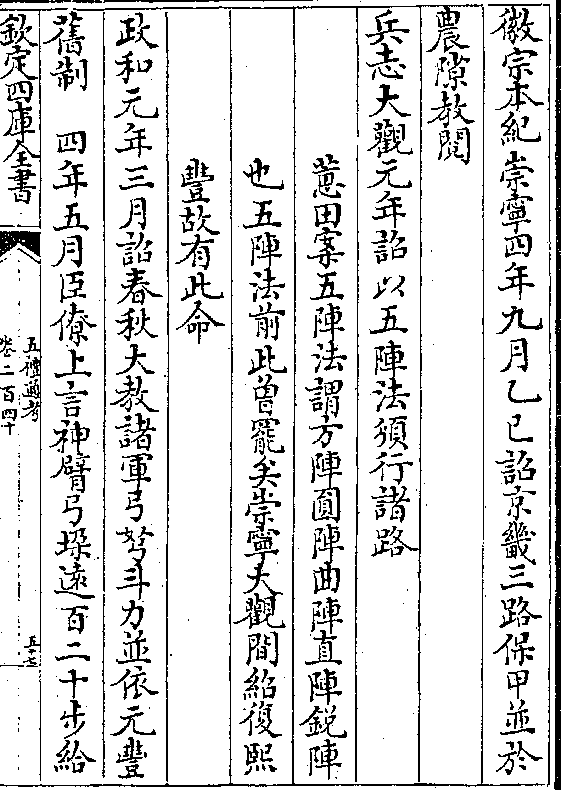 徽宗本紀崇寧四年九月乙巳詔京畿三路保甲並於
農隙教閱
兵志大觀元年詔以五陣法頒行諸路
蕙田案五陣法謂方陣圓陣曲陣直陣鋭陣
也五陣法前此曾罷矣崇寧大觀間紹復熙
豐故有此命
政和元年三月詔春秋大教諸軍弓弩斗力並依元豐
舊制　四年五月臣僚上言神臂弓垛遠百二十步給
欽定四庫全書
五禮通考
卷二百四十
五十七